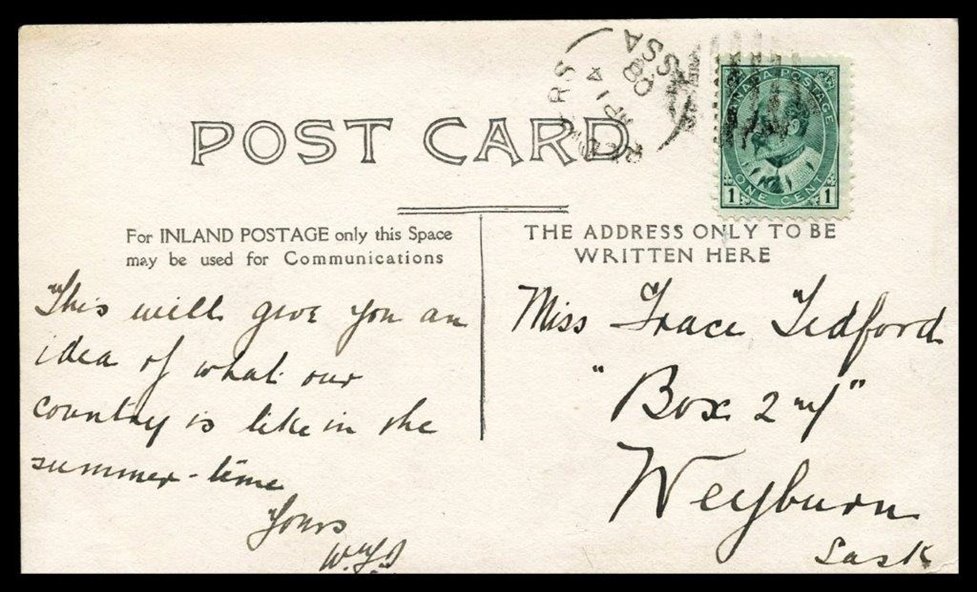 POST CARD
SSA
08
CANADA POSTAGE
1 ONE CENT 1
For INLAND POSTAGE only this Space
may be used for Communications
THE ADDRESS ONLY TO BE
WRITTEN HERE
This will give you an
idea of what our
country is like in the
summer-time
Yours
Miss Grace Tedford
"Box 2
Weyburn
Sask